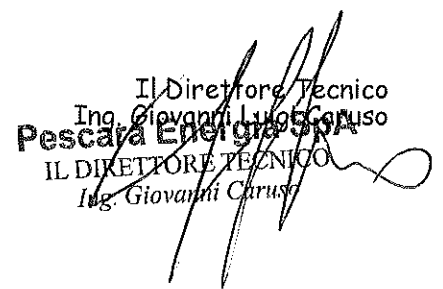 Il Direttore Tecnico
Ing. Giovanni Luigi Caruso
Pescara Energia SpA
IL DIRETTORE TECNICO
Ing. Giovanni Caruso